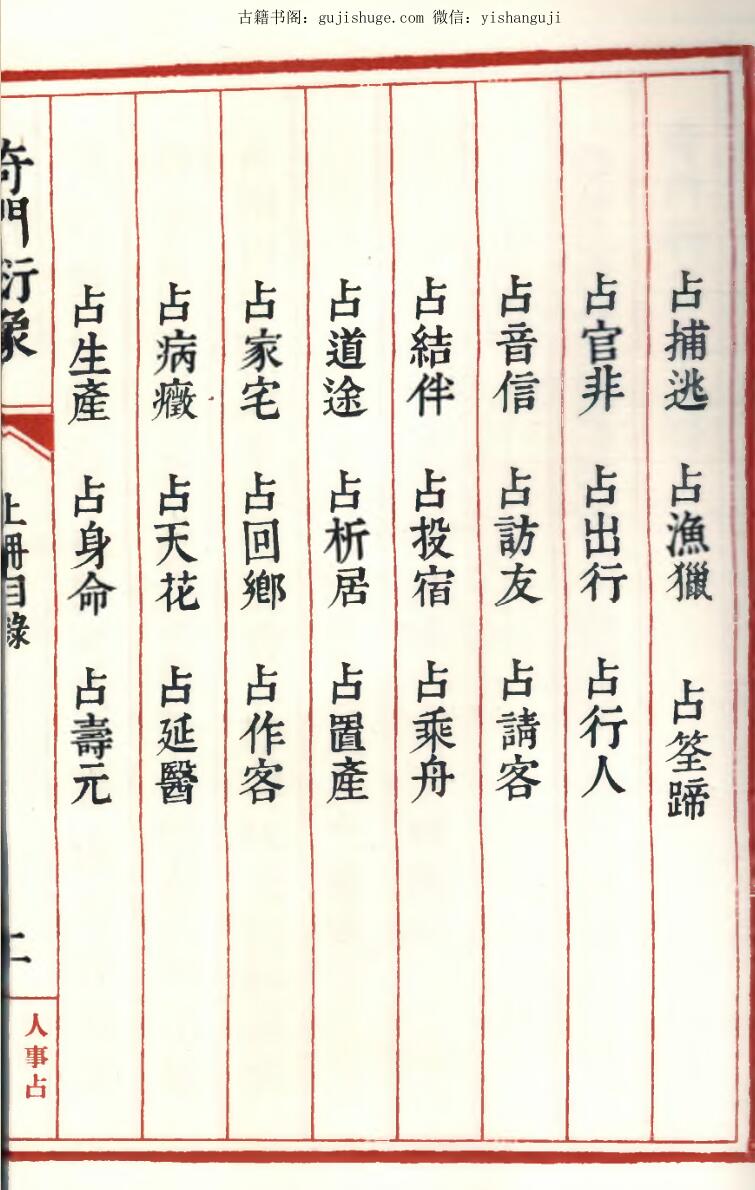 古籍书阁：gujishuge.com 微信：yishanguji
占捕逃 占漁獵 占筌蹄
占官非 占出行 占行人
占音信 占訪友 占請客
占結伴 占投宿 占乘舟
占道途 占析居 占置產
占家宅 占回鄉 占作客
占病癥 占天花 占延醫
占生產 占身命 占壽元
奇門衍象
上冊目錄
二
人事占